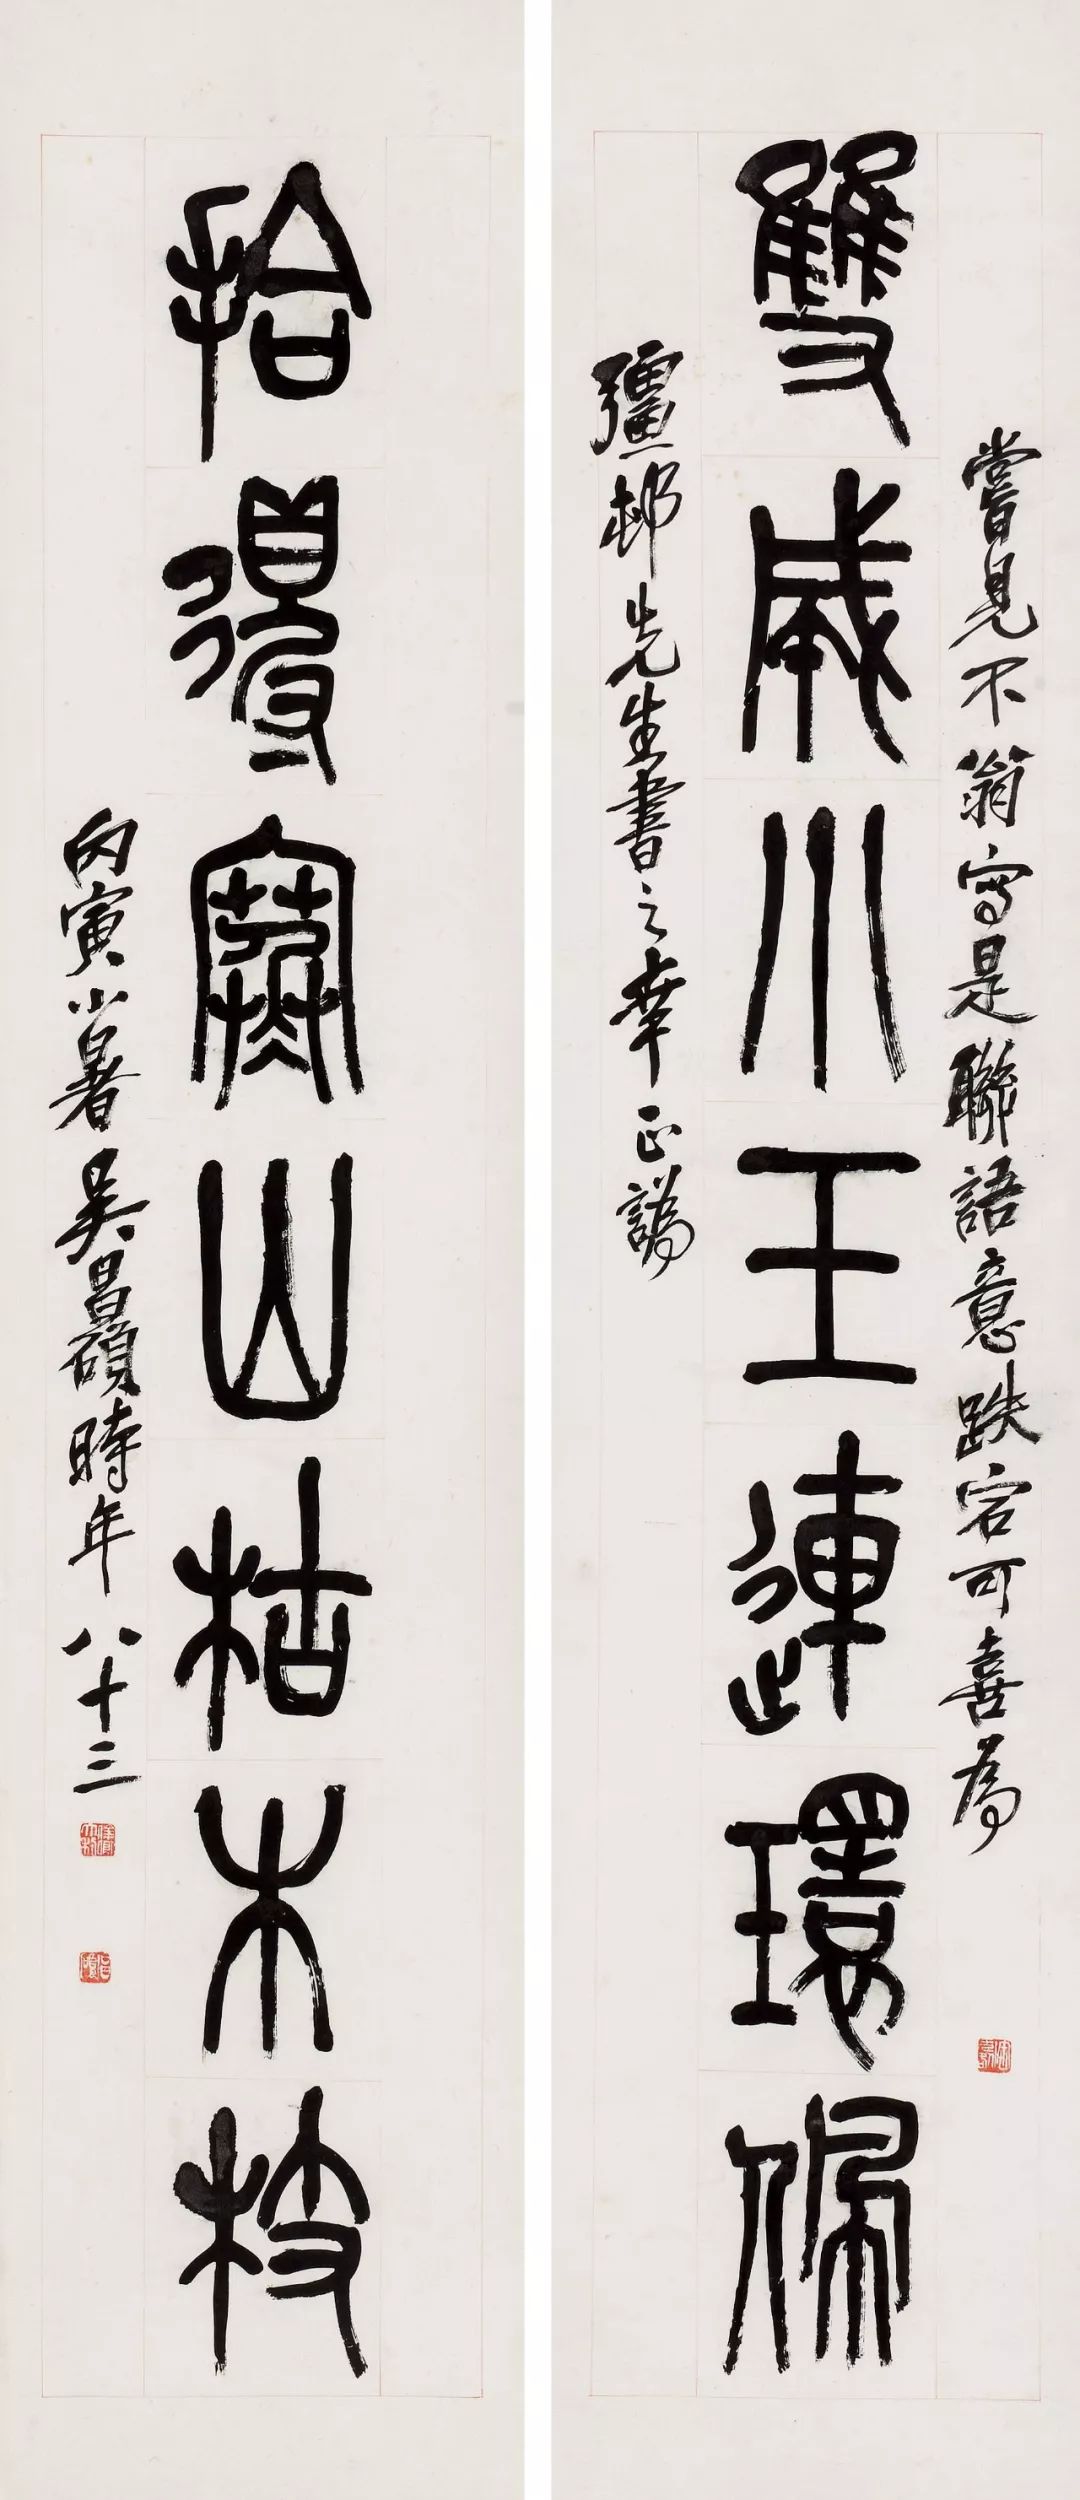 嘗見不翁寫是聯語意跌宕可喜為
雙成小玉連環佩
彊邨先生書之幸正譌
拾得寒山枯木枝
丙寅小暑吳昌碩時年八十三